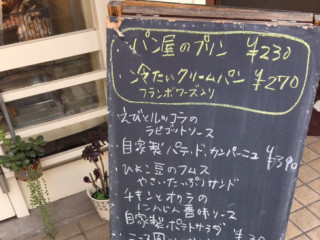 ・パン屋のプリン ¥230
・冷たいクリームパン ¥270
フランボワーズ入り
・えびとルッコラの
ラビゴットソース
・自家製パテ・ド・カンパーニュ
・ひよこ豆のフムス
やさいたっぷりサンド
・チキンとオクラの
にんじん香味ソース
・自家製ポテトサラダ